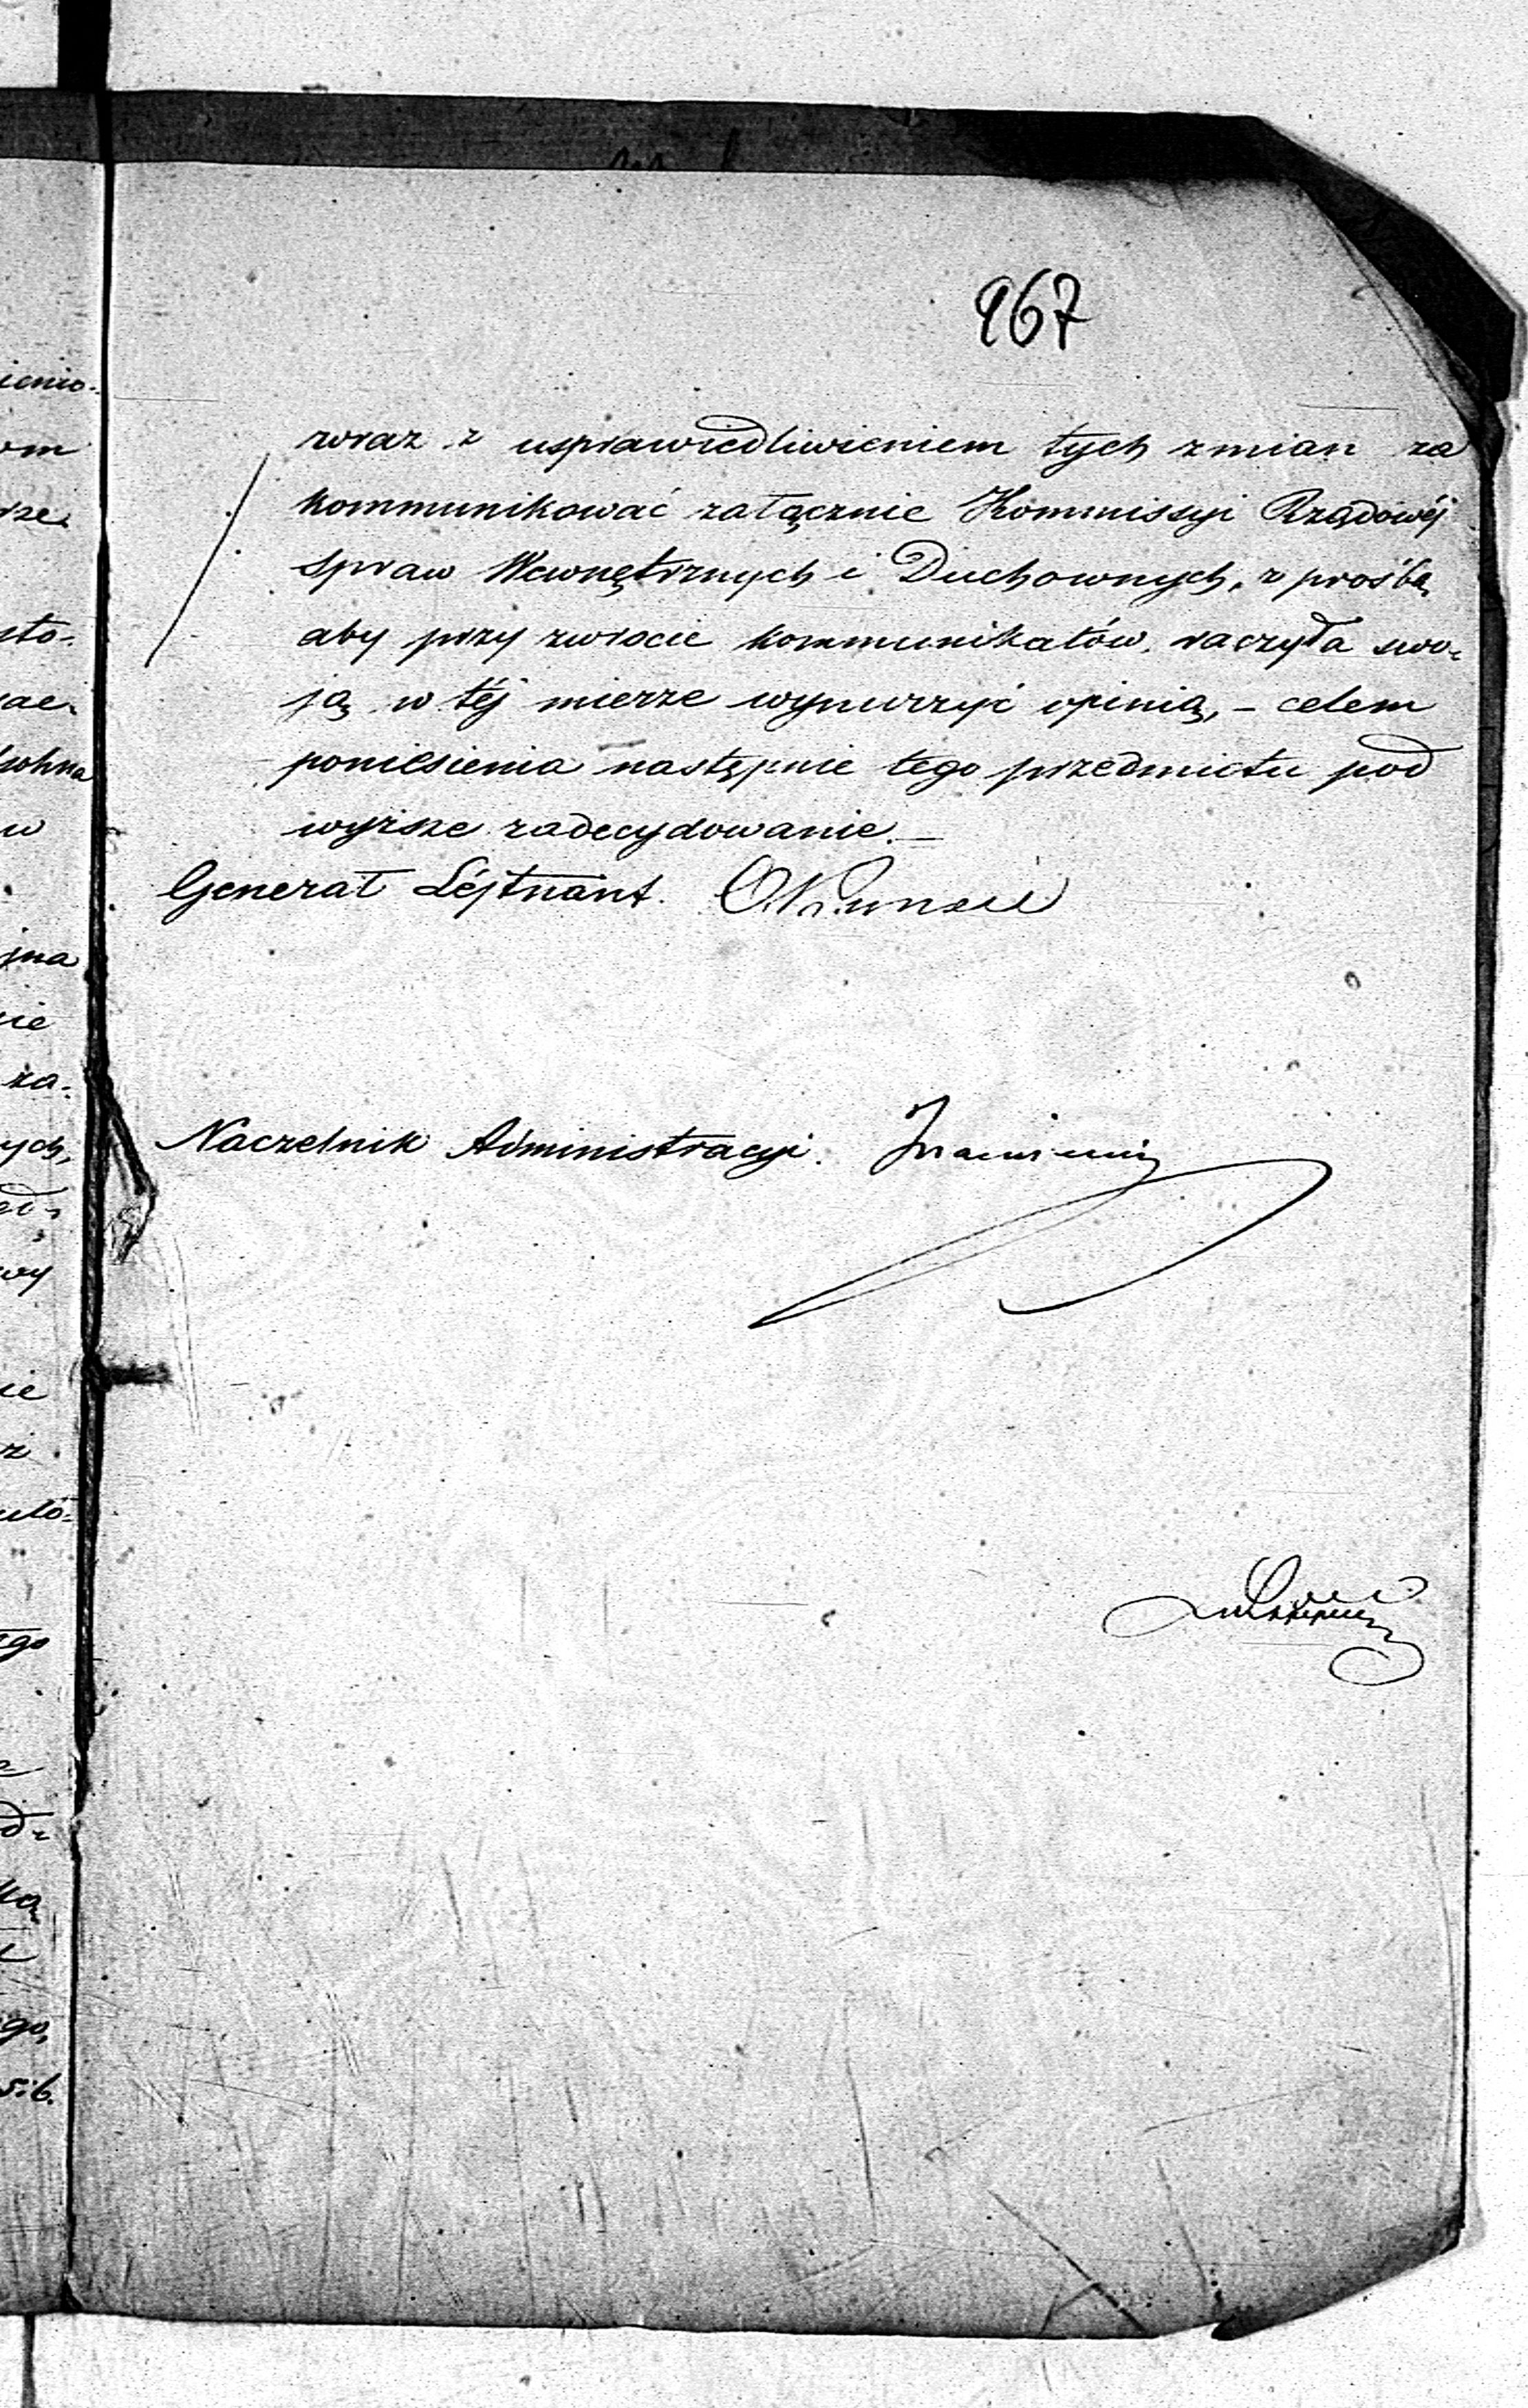 967
wraz z usprawiedliwieniem tych zmian za
kommunikować załącznie Kommissyi Rządowéj
Spraw Wewnętrznych i Duchownych, z prośbą
aby przy zwrocie kommunikatów, raczyła swo-
ją w téj mierze wynurzyć opinią, - celem
poniesienia następnie tego przedmiotu pod
wyższe zadecydowanie. -
Generał Lejtnant.
Naczelnik Administracyi.